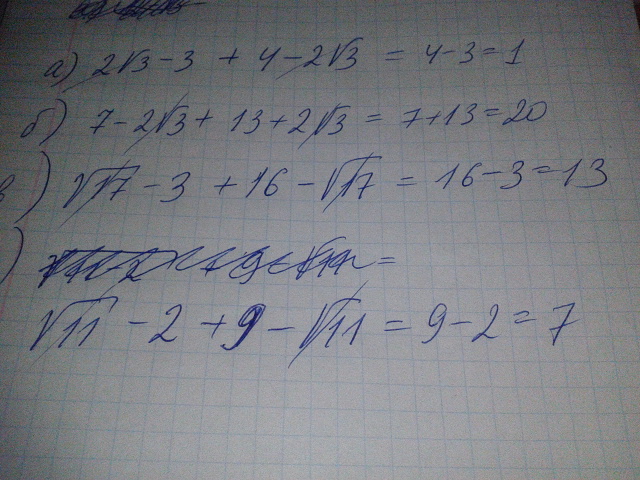 а) 2√3 - 3 + 4 - 2√3 = 4 - 3 = 1
б) 7 - 2√3 + 13 + 2√3 = 7 + 13 = 20
в) √17 - 3 + 16 - √17 = 16 - 3 = 13
) =
√11 - 2 + 9 - √11 = 9 - 2 = 7